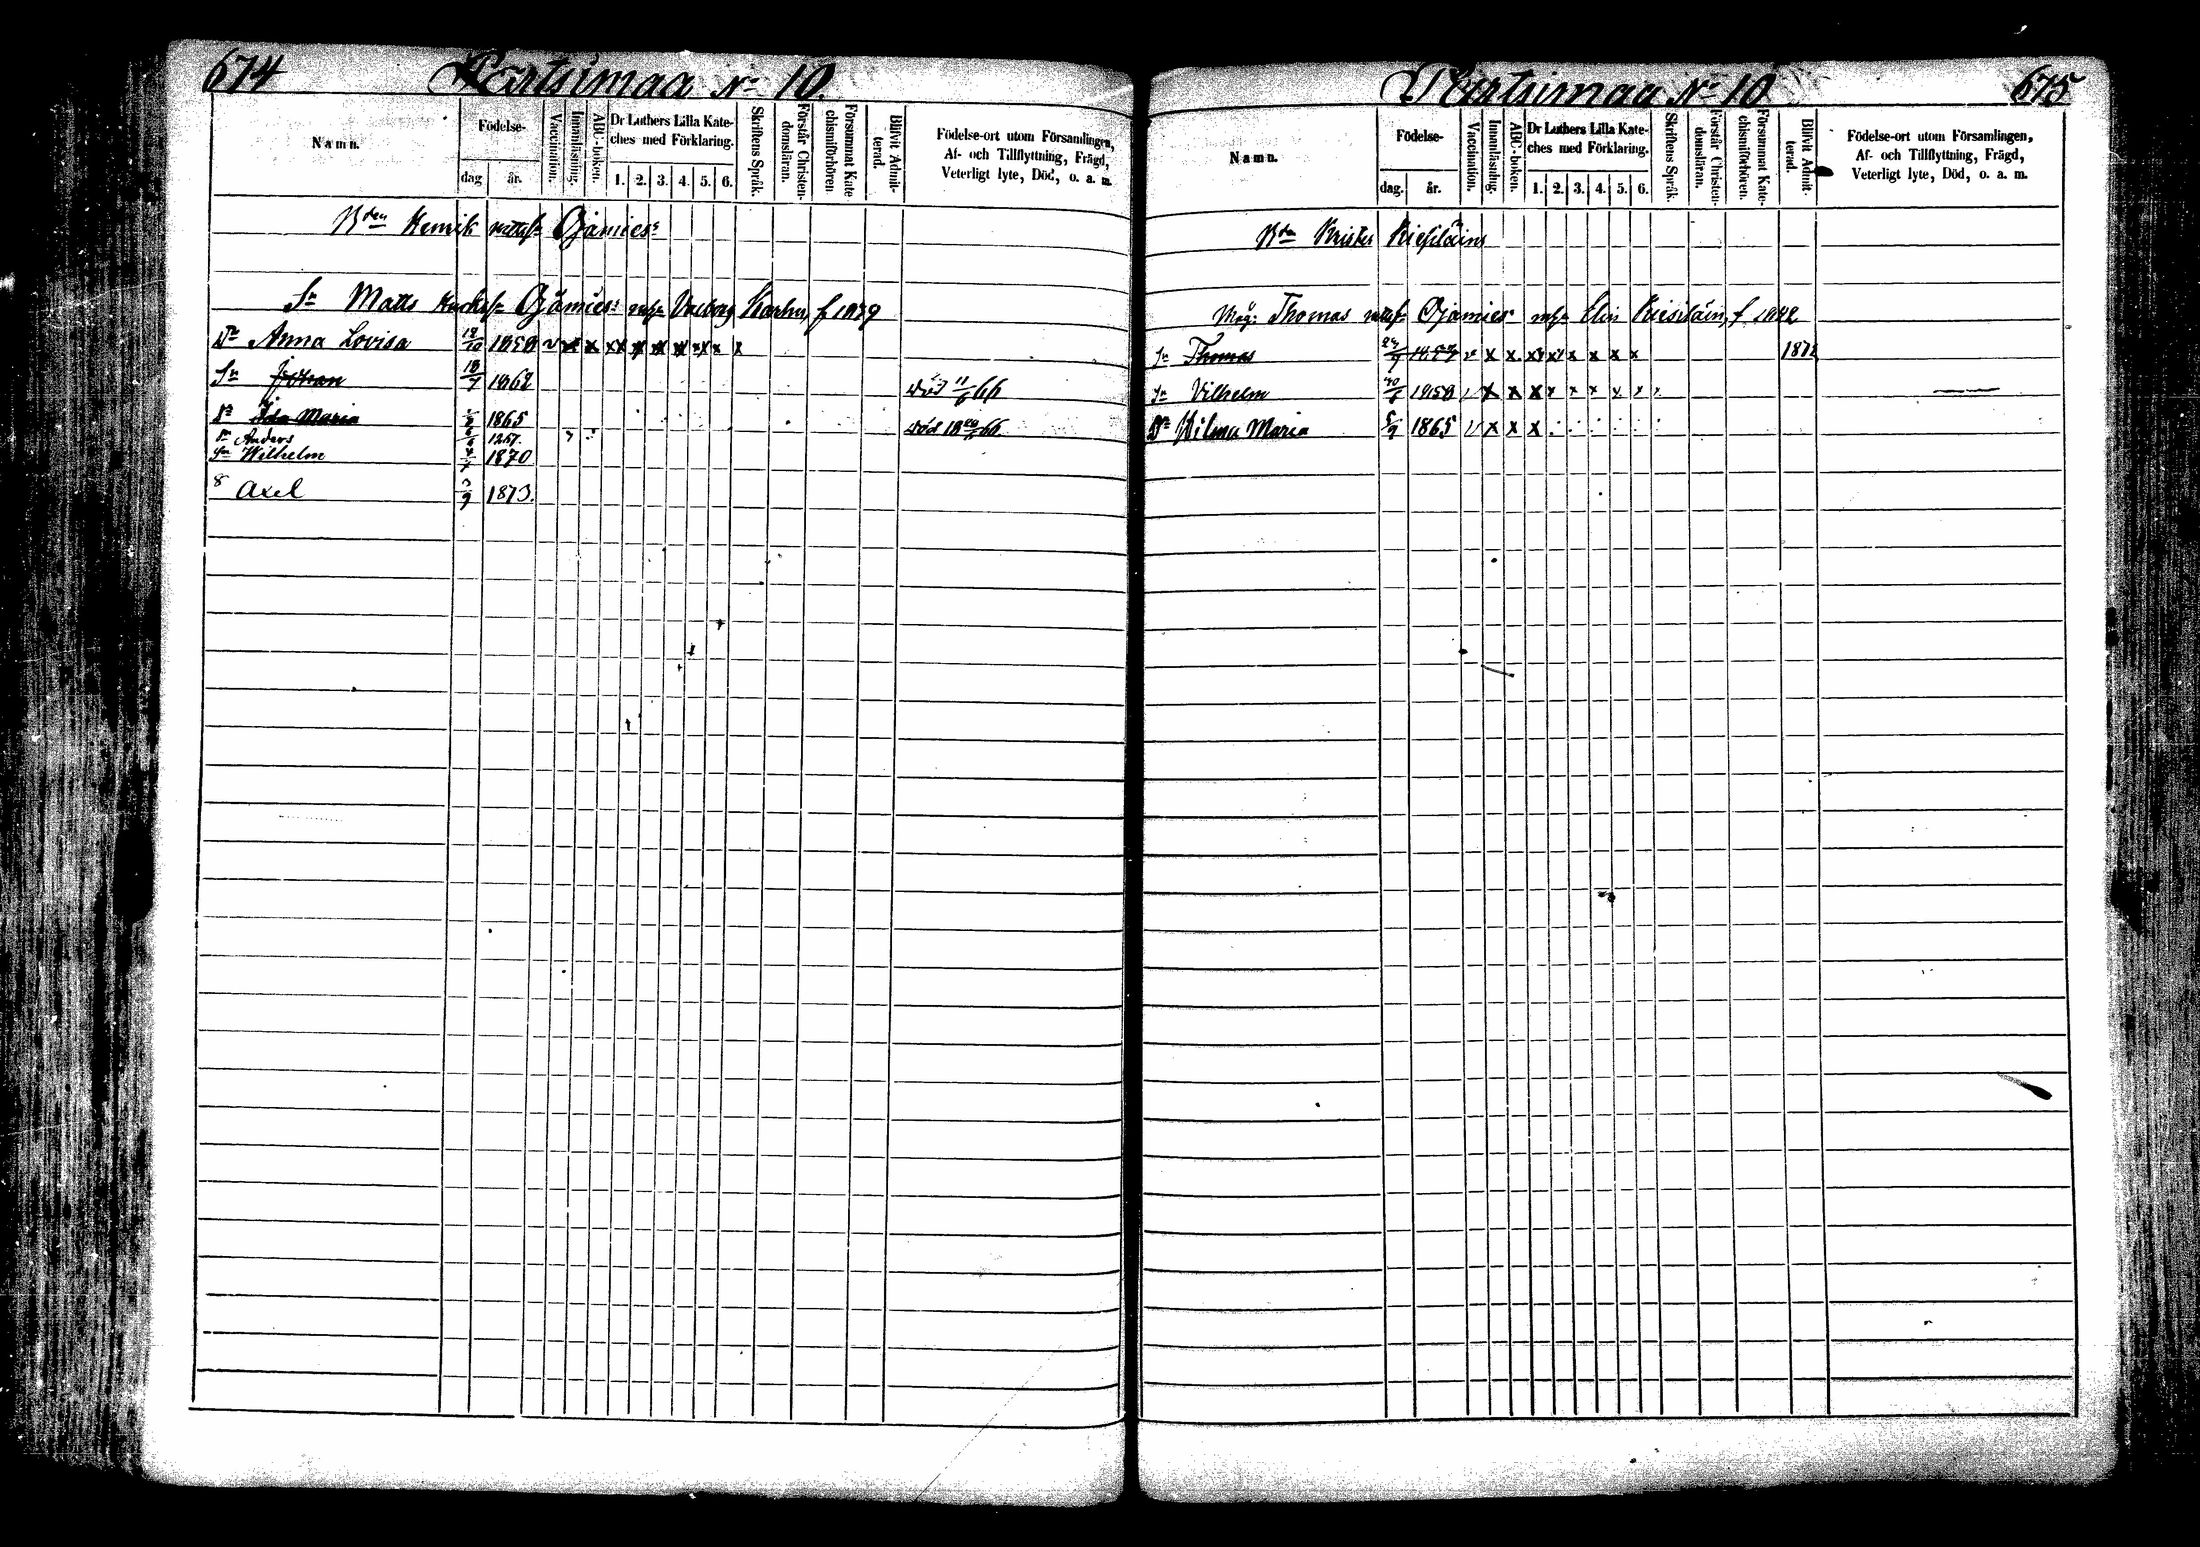 674
Pärtsimaa No 10.
Namn.
Födelse-
dag
år.
Vaccination.
Innanläsning.
ABC-boken.
Dr Luthers Lilla Kate-
ches med Förklaring.
1. 2. 3. 4. 5. 6.
Skriftens Språk.
Förstår Christen-
domsläran.
Försummat Kate
chismiförhören
Blifvit Admit-
terad.
Födelse-ort utom Församlingen,
Af- och Tillflyttning, Frägd,
Veterligt lyte, Död, o. a. m.
Bden Henrik Ojamies:
Sn Matts Ojamies: Karhu f 1879
Dr Anna Lovisa 19/10 1858 v x x x x x x x x x
Sn Johan 18/7 1862 död 11/6 66
Dr Ida Maria 1865 död 18 66.
Sn Anders 1867.
Sn Wilhelm 1870
S Axel 3/9 1873.
675
Pärtsimaa No 10
Namn.
Födelse-
dag.
år.
Vaccination.
Innanläsning.
ABC-boken.
Dr Luthers Lilla Kate-
ches med Förklaring.
1. 2. 3. 4. 5. 6.
Skriftens Språk.
Förstår Christen-
domsläran.
Försummat Kate-
chismiförhören
Blifvit Admit-
terad.
Födelse-ort utom Församlingen,
Af- och Tillflyttning, Frägd,
Veterligt lyte, Död, o. a. m.
Bden Krister Kiesiläin
Måg: Thomas Ojamies Elin Kiesiläin, f 1842
Sn Thomas 1857 v x x x x x x x x 1872
Sn Vilhelm 1858 v x x x x x x x x
Dr Wilma Maria 5/9 1865 v x x x